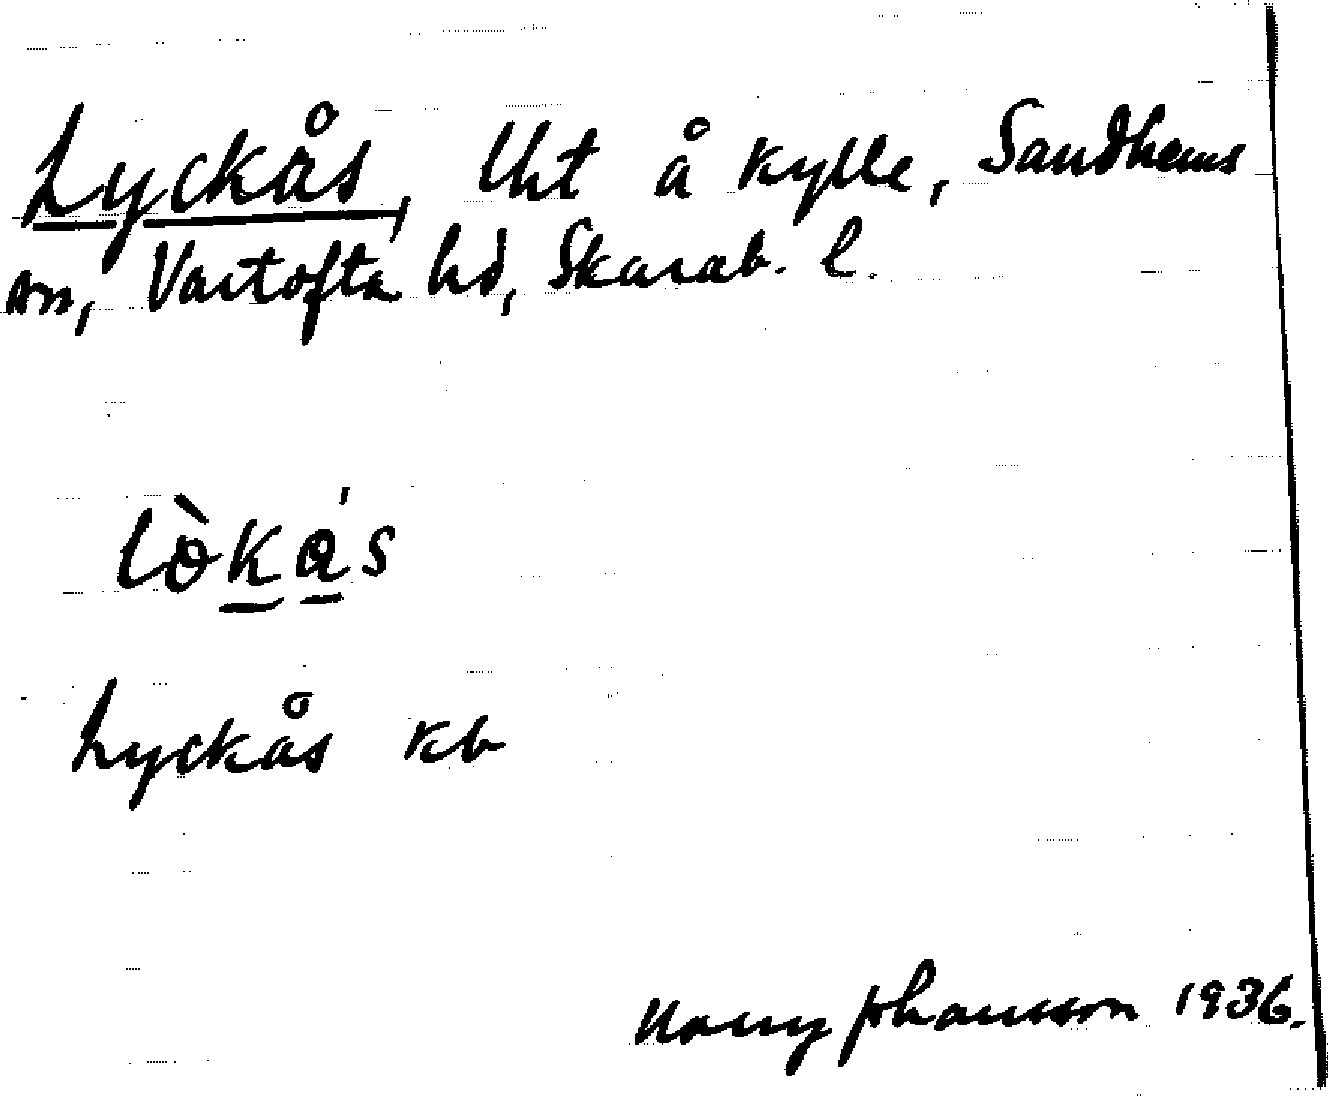 Lyckås, Uht å Kylle, Sandhems
sn, Vartofta hd, Skarab. l.
lòkás
Lyckås kb
Harry Johansson 1936.